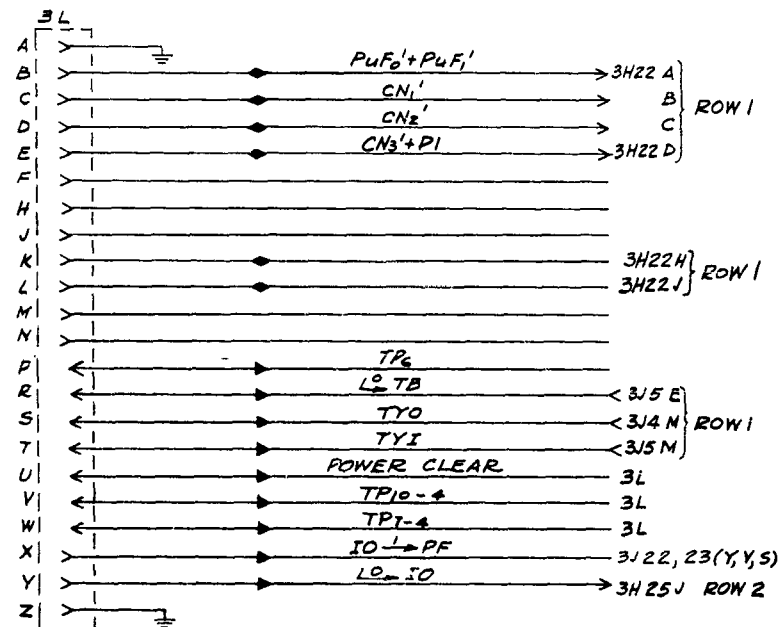 3L
A
B PuF₀'+PuF₁' 3H22 A
C CN₁' B ROW 1
D CN₂' C
E CN₃'+PI 3H22 D
F
H
J
K 3H22H
L 3H22J ROW 1
M
N
P TP₆
R L⁰ TB 3J5 E
S TYO 3J4 N ROW 1
T TYI 3J5 M
U POWER CLEAR 3L
V TP10-4 3L
W TP7-4 3L
X IO 1 PF 3J22, 23(Y,Y,S)
Y L⁰ IO 3H25J ROW 2
Z